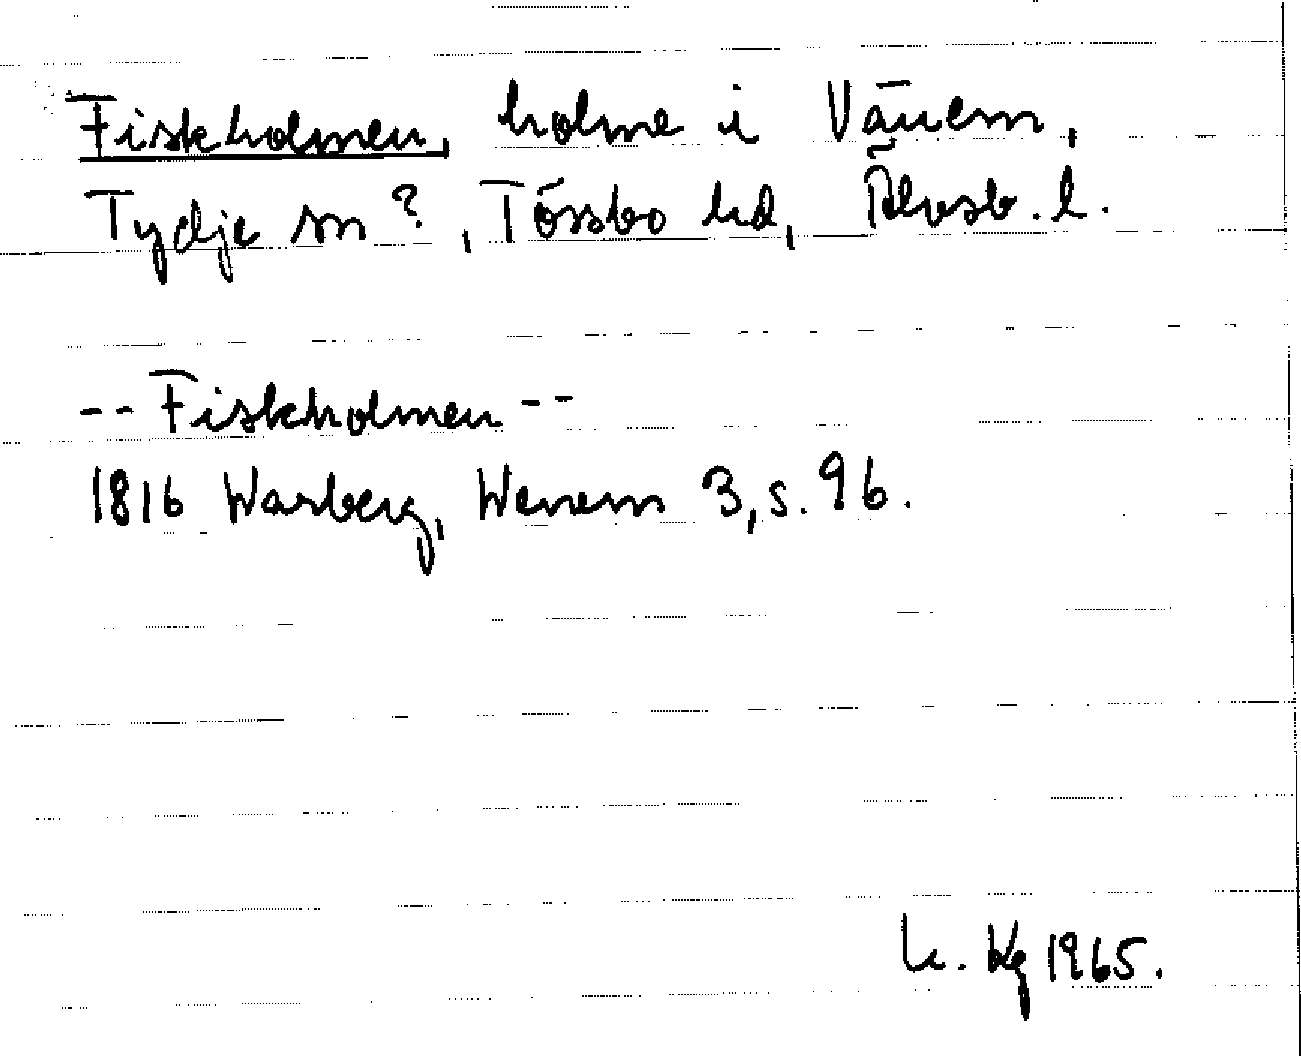 Fiskholmen, holme i Vänern,
Tydje sn?, Tössbo hd, Älvsb. l.
-- Fiskholmen --
1816 Warberg, Wenern 3, s. 96.
1965.